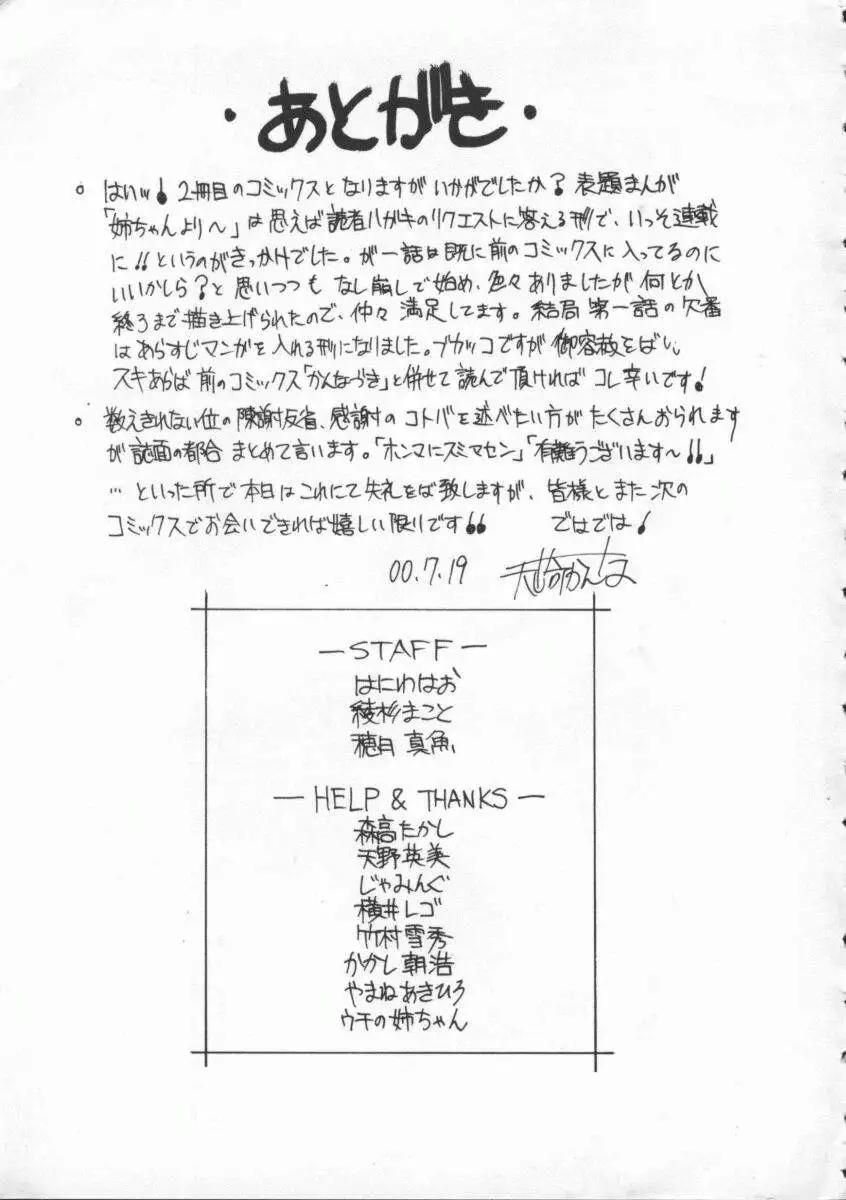 ・あとがき・
。はいッ！2冊目のコミックスとなりますがいかがでしたか？表題まんが
「姉ちゃんより〜」は思えば読者ハガキのリクエストに答える形で、いっそ連載
に！！というのがきっかけでした。が一話は既に前のコミックスに入ってるのに
いいかしら？と思いつつもなし崩しで始め、色々ありましたが何とか
終了まで描き上げられたので、仲々満足してます。結局第一話の欠番
はあらすじマンガを入れる形になりました。ブカッコですが御容赦をばし、
スキあらば前のコミックス「かんなづき」と併せて読んで頂ければコレ幸いです！
。数えきれない位の陳謝反省、感謝のコトバを述べたい方がたくさんおられます
が誌面の都合まとめて言います。「ホンマにスミマセン」「有難うございます〜！！」
…といった所で本日はこれにて失礼をば致しますが、皆様とまた次の
コミックスでお会いできれば嬉しい限りです！！ ではでは！
00.7.19
—STAFF—
はにわはお
綾杉まこと
穂月真魚
—HELP & THANKS—
森高たかし
天野英美
じゃみんぐ
横井レゴ
竹村雪秀
かかし朝浩
やまねあきひろ
ウチの姉ちゃん